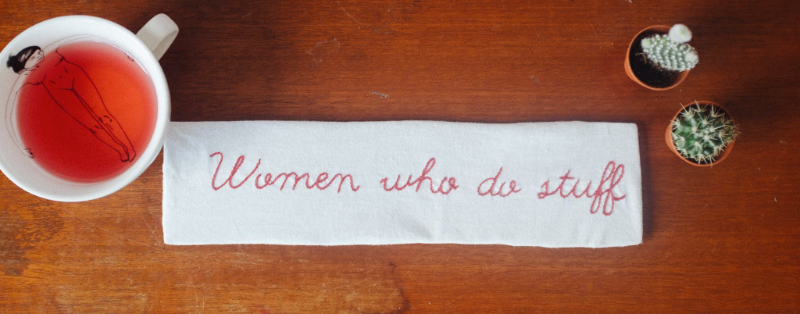 Women who do stuff